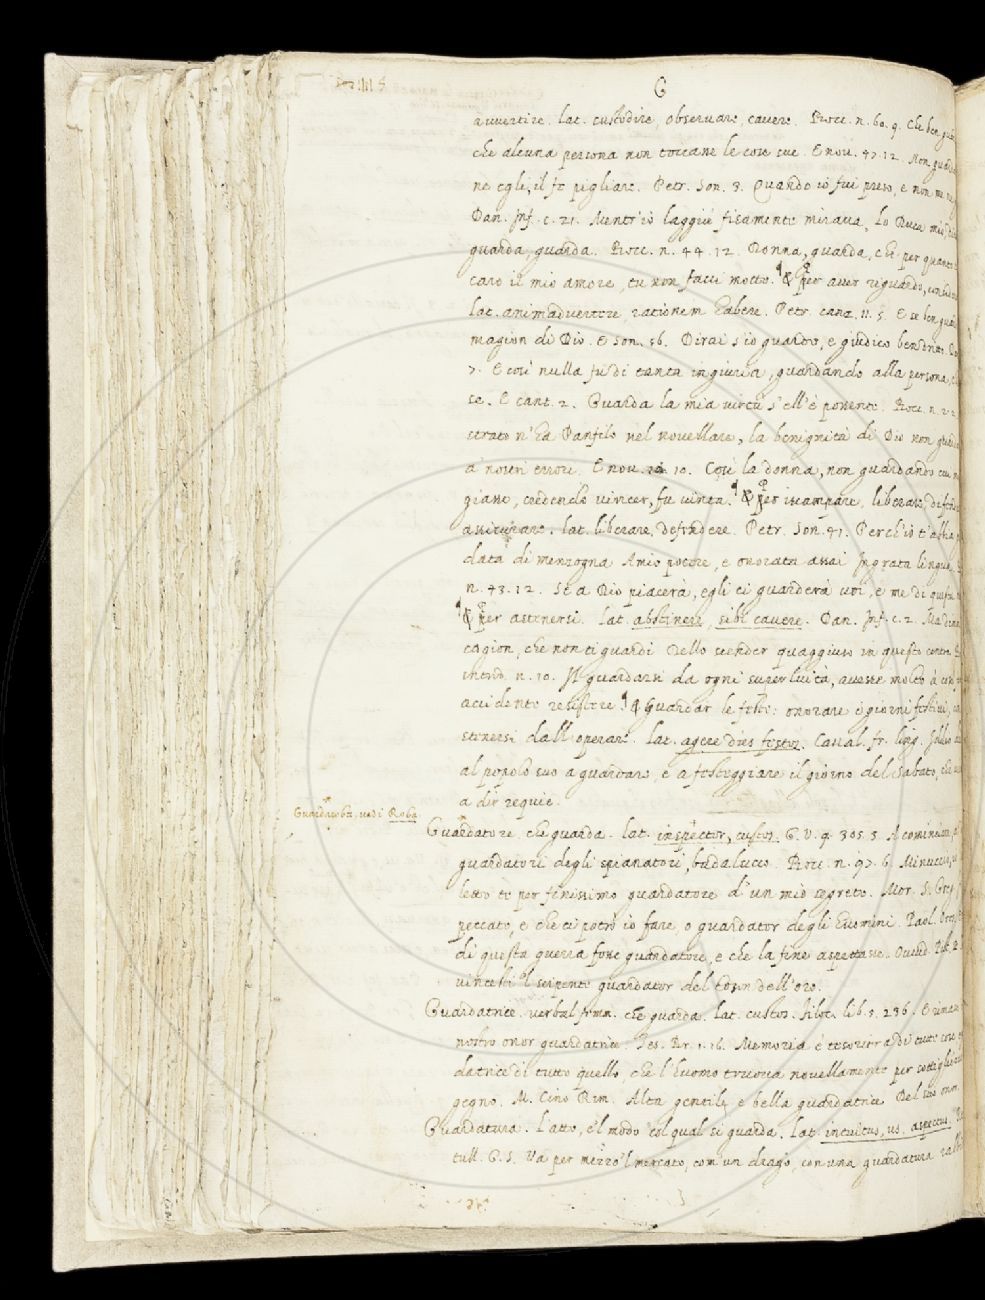 G
avvertire. lat. custodire, observare, cavere. Bocc. n. 60. 9. Che ben
che alcuna persona non toccasse le cose sue. E nov. 47. 12. Non
ne egli, il fe pigliare. Petr. Son. 3. Quando io fui preso, e non me ne
Dan. Inf. c. 21. Mentr'io laggiù fisamente mirava, Lo Duca mio,
guarda, guarda. Bocc. n. 44. 12. Donna, guarda, che per quanto
caro il mio amore, tu non facci motto. ¶ & per aver riguardo,
lat. animadvertere, rationem habere. Petr. canz. 11. 5. E se ben
magion di Dio. E Son. 56. Dirai s'io guardo, e giudico ben dritto.
7. E così nulla fu di tanta ingiuria, guardando alla persona,
se. E cant. 2. Guarda la mia virtù s'ell'è possente. Bocc. n. 2. 2.
strato n'ha Panfilo nel novellare, la benignità di Dio non
a' nostri errori. E nov. 10. Così la donna, non guardando cui
giasse, credendo vincer, fu vinta. ¶ & per iscampare, liberare,
assicurare. lat. liberare, defendere. Petr. Son. 41. Perch'io t'abbia
data di menzogna A mio potere, e onorata assai Ingrata lingua,
n. 43. 12. Se a Dio piacerà, egli ci guarderà voi, e me di questa
¶ & per astenersi. lat. abstinere, sibi cavere. Dan. Inf. c. 2. Ma
cagion, che non ti guardi Dello scender quaggiuso in questo centro
introd. n. 10. Il guardarsi da ogni superfluità, avesse molto a
accidente resistere. ¶ Guardar le feste: onorare i giorni festivi,
stenersi dall'operare. lat. agere dies festos. Caval. fr. ling. Iddio
al popolo suo a guardare, e a festeggiare il giorno del Sabato, che
a dir requie.
Guardaroba. vedi Roba.
Guardatore, che guarda. lat. inspector, custos. G. V. 9. 305. 3. A cominciare
guardatori degli spianatori, badalucco. Bocc. n. 97. 6. Minuccio,
letto te per fenissimo guardatore d'un mio segreto. Mor. S. Greg.
peccato, e che ci potrò io fare, o guardator degli huomini. Paol. Oros.
di questa guerra fosse guardatore, e che la fine aspettasse. Ovvid. Pist.
vincesti 'l serpente guardator del toson dell'oro.
Guardatrice. verbal femm. che guarda. lat. custos. filoc. lib. 5. 236. E
nostro onor guardatrice. Tes. Br. 1. 16. Memoria è tesoriera di tutte cose
datrice di tutto quello, che l'huomo truova novellamente per
gegno. M. Cino Rim. Alta gentile, e bella guardatrice Del suo
Guardatura. l'atto, e 'l modo col qual si guarda. lat. intuitus, us. aspectus.
tull. G. S. Va per mezzo 'l mercato, com'un drago, con una guardatura